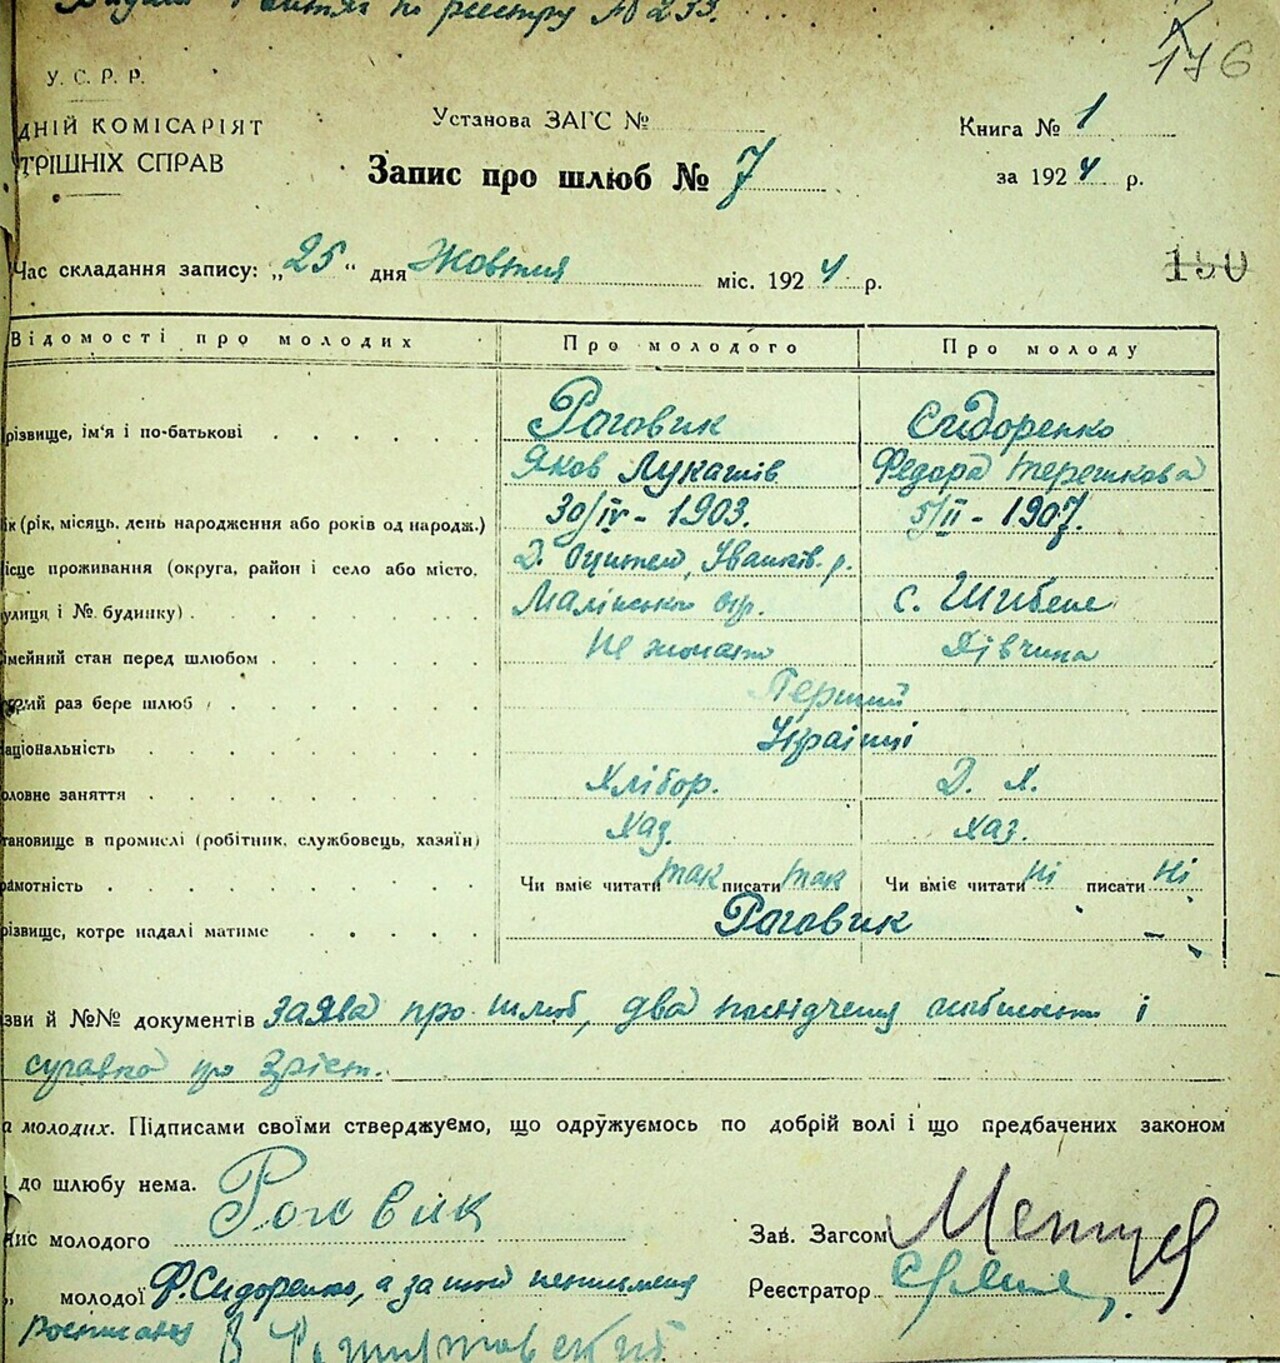 по реєстру № 233.
176
У. С. Р. Р.
ДНІЙ КОМІСАРІЯТ
ТРІШНІХ СПРАВ
Установа ЗАГС №
Книга № 1
Запис про шлюб № 7
за 1924 р.
150
Час складання запису: „25“ дня Жовтня міс. 1924 р.
Відомості про молодих Про молодого Про молоду
різвище, ім'я і по-батькові Роговик Сидоренко
Яков Лукашів Федора Терешкова
ік (рік, місяць, день народження або років од народж.) 30/IV - 1903. 5/II - 1907.
ісце проживання (округа, район і село або місто, Іванків. р.
улиця і № будинку) Малінської окр. с. Шибене
імейний стан перед шлюбом Не жонат Дівчина
раз бере шлюб Перший
аціональність Українці
оловне заняття Хлібор. Д. Х.
тановище в промислі (робітник, службовець, хазяїн) Хаз. Хаз.
рамотність Чи вміє читати так писати так Чи вміє читати ні писати ні
різвище, котре надалі матиме Роговик
зви й №№ документів заява про шлюб, два посвідчення і
справка про зріст.
а молодих. Підписами своїми стверджуємо, що одружуємось по добрій волі і що предбачених законом
до шлюбу нема.
ис молодого Роговик
Зав. Загсом
„ молодої Ф. Сидоренко, а за неї неписьменну
Реєстратор
росписався